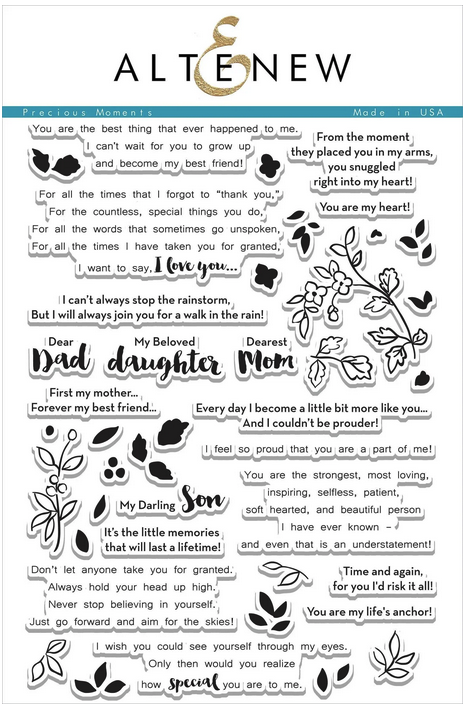 ALTENEW
Precious Moments
Made in USA
You are the best thing that ever happened to me.
I can't wait for you to grow up
and become my best friend!
From the moment
they placed you in my arms,
you snuggled
right into my heart!
You are my heart!
For all the times that I forgot to "thank you,"
For the countless, special things you do,
For all the words that sometimes go unspoken,
For all the times I have taken you for granted,
I want to say, I love you...
I can't always stop the rainstorm,
But I will always join you for a walk in the rain!
Dear
Dad
My Beloved
daughter
Dearest
Mom
First my mother...
Forever my best friend...
Every day I become a little bit more like you...
And I couldn't be prouder!
I feel so proud that you are a part of me!
You are the strongest, most loving,
inspiring, selfless, patient,
soft hearted, and beautiful person
I have ever known –
and even that is an understatement!
My Darling Son
It's the little memories
that will last a lifetime!
Don't let anyone take you for granted.
Always hold your head up high.
Never stop believing in yourself.
Just go forward and aim for the skies!
Time and again,
for you I'd risk it all!
You are my life's anchor!
I wish you could see yourself through my eyes.
Only then would you realize
how special you are to me.